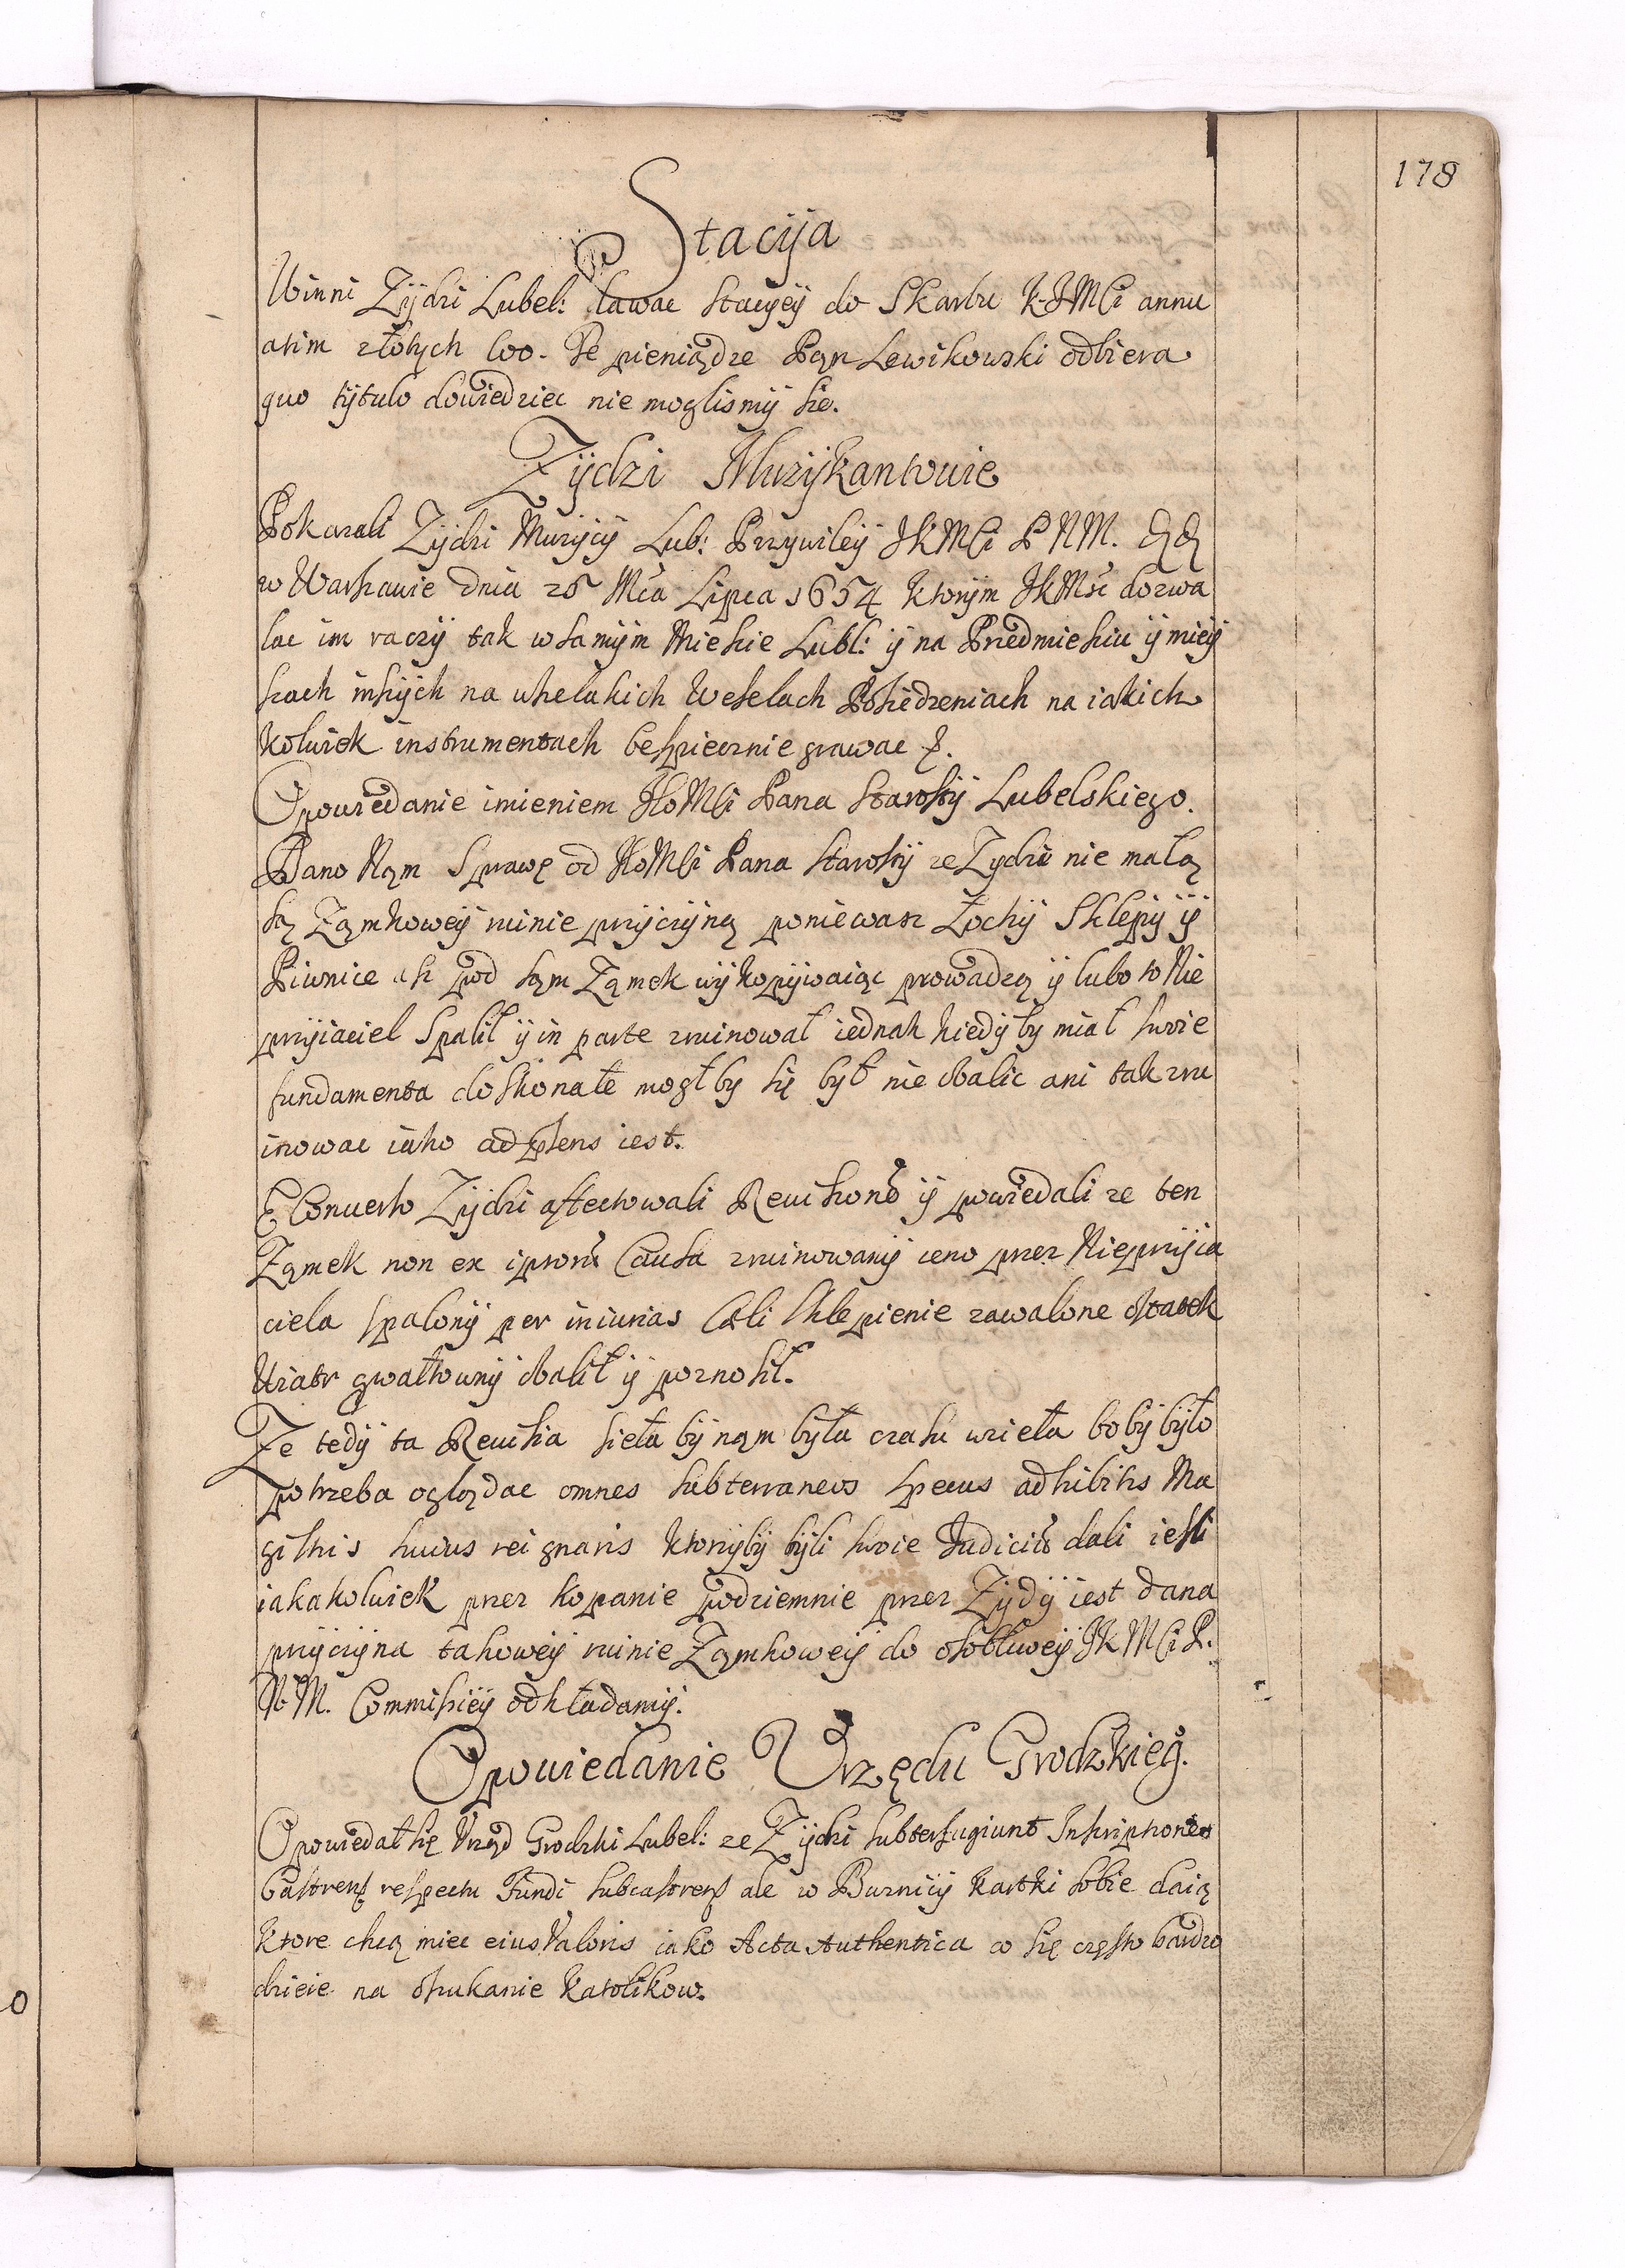 178
Stacija
Winni Zydzi Lubel: dawac stacyey do Skarbu K JMCi annu
atim złotych 600. Te pieniądze Pan Lewikowski odbiera
quo tytulo dowiedziec nie moglismy sie.
Zydzi Muzykantowie
Pokazali Zydzi Muzycy Lub: Przywiley JKMCi P N M.
w Warszawie dnia 25 Mca Lipca 1654 ktorym JKMsc dozwa
lac im raczy tak w samym Miescie Lubl: y na Przedmiesciu y miey
scach inszych na wszelakich Weselach Posiedzeniach na iakich
kolwiek instrumentach bespiecznie grawac
Opowiedanie imieniem JeoMCi Pana Starosty Lubelskiego.
Dano Nam Sprawę od JeoMCi Pana Starosty ze Zydzi nie małą
są Zamkowey ruinie przyczyną poniewasz Lochy Sklepy y
Piwnice asz pod sam Zamek wykopywaiąc prowadzą y lubo to Nie
przyiaciel Spalił y in parte zruinował iednak kiedy by miał swoie
fundamenta doskonałe mogł by się był nie obalic ani tak zru
inowac iako ad praesens iest.
E Converso Zydzi affectowali Rewisorow y powiedali ze ten
Zamek non ex ipsorum Causa zruinowany ieno przez Nieprzyia
ciela spalony per iniurias Caeli sklepienie zawalone ostatek
Wiatr gwałtowny obalił y poznosił.
Ze tedy ta Rewisia siełaby nam była czasu wzieła bo by było
potrzeba oglądac omnes subterraneos specus adhibitis Ma
gistris huius rei gnaris ktorzyby byli swoie Judicium dali iesli
iakakolwiek przez kopanie podziemnie przez Zydy iest dana
przyczyna takowey ruinie Zamkowey do osobliwey JK MCi P.
N M. Commissiey odkładamy.
Opowiedanie Urzędu Grodzkieg°.
Opowiedał się Urząd Grodzki Lubel: ze Zydzi subterfugiunt Inscriptiones
Castrens respectu Fundi subcastrens ale w Buznicy kartki sobie daią
ktore chcą miec eius Valoris iako Acta Authentica co się często bardzo
dzieie na oszukanie Katolikow.